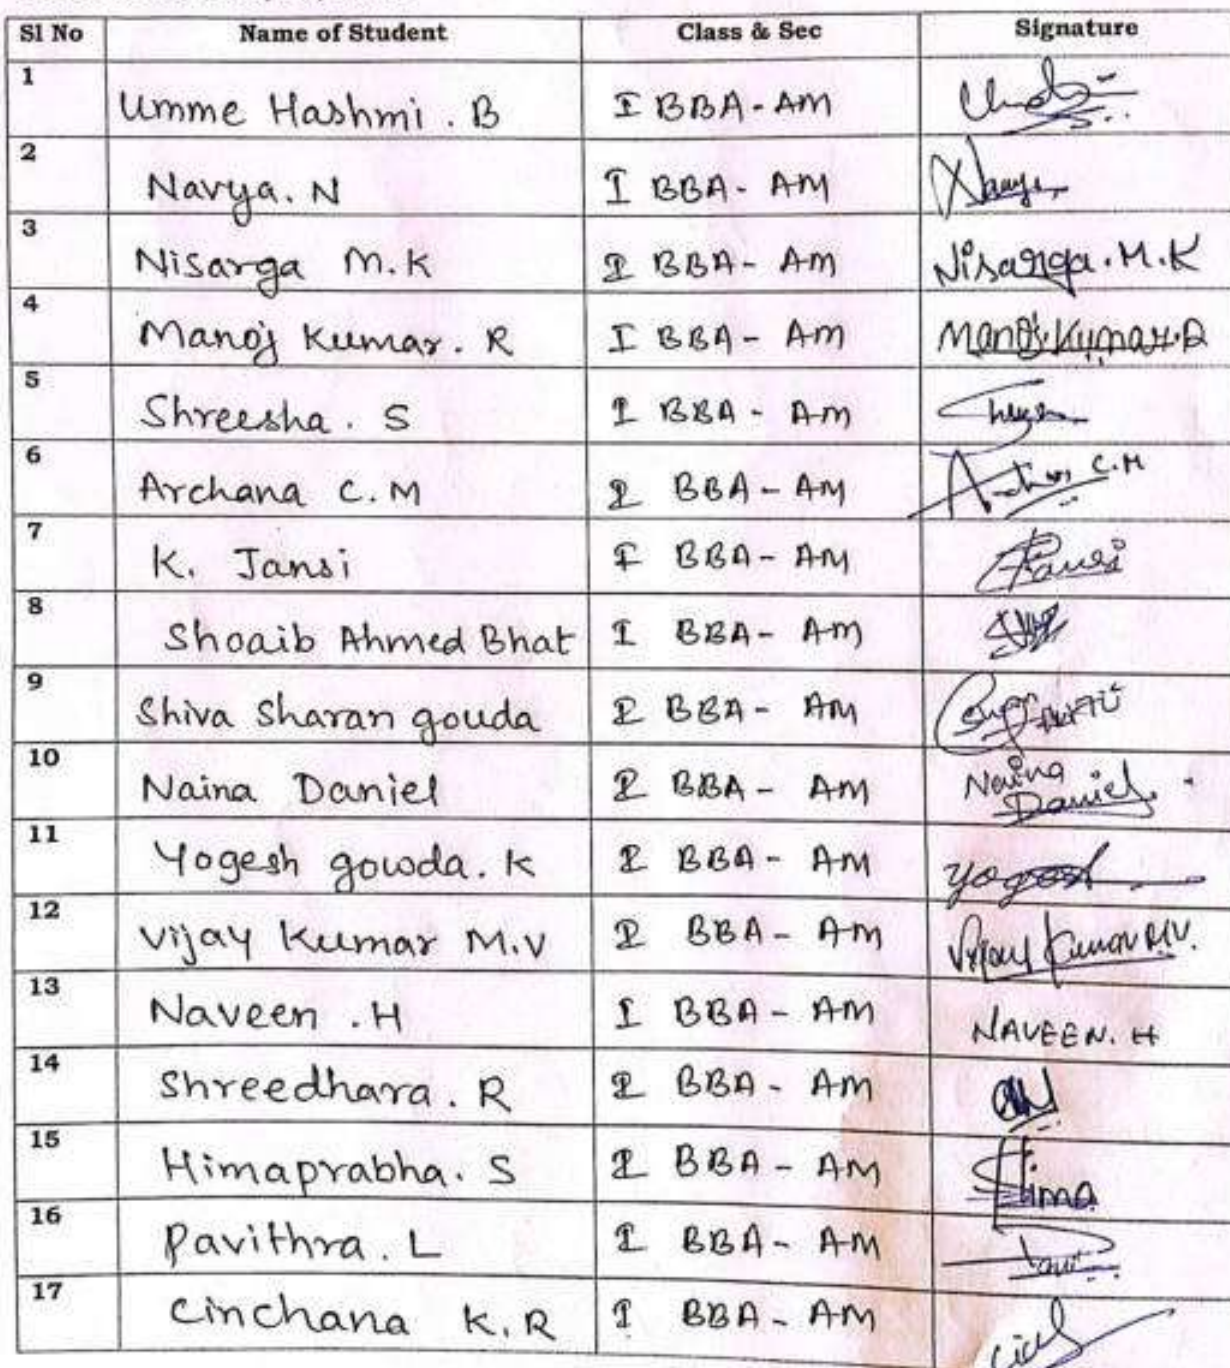 Sl No Name of Student Class & Sec Signature
1 Umme Hashmi . B I BBA - AM
2 Navya. N I BBA - AM
3 Nisarga M.K I BBA - AM Nisarga.M.K
4 Manoj Kumar. R I BBA - AM Manoj.Kumar.R
5 Shreesha . S I BBA - AM
6 Archana C.M I BBA - AM C.M
7 K. Jansi I BBA - AM
8 Shoaib Ahmed Bhat I BBA - AM
9 Shiva Sharan gouda I BBA - AM
10 Naina Daniel I BBA - AM Naina Daniel
11 Yogesh gowda. K I BBA - AM
12 Vijay Kumar M.V I BBA - AM Vijay Kumar M.V.
13 Naveen . H I BBA - AM NAVEEN. H
14 Shreedhara. R I BBA - AM
15 Himaprabha. S I BBA - AM Hima
16 Pavithra. L I BBA - AM
17 Cinchana K.R I BBA - AM